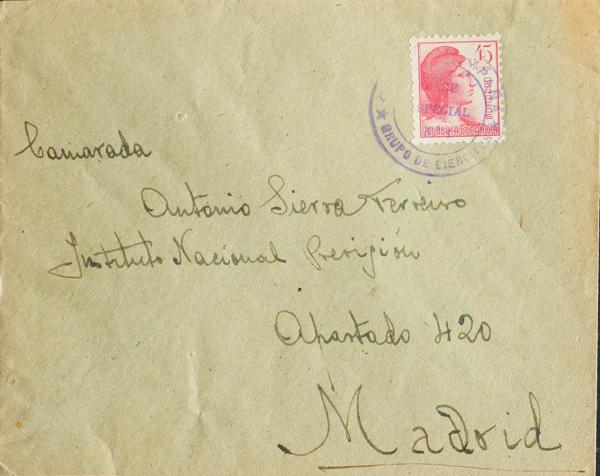 45
CENTIMOS
REPUBLICA ESPAÑOLA
ESPECIAL
GRUPO DE EJERCITOS
Camarada
Antonio Sierra Ferreiro
Instituto Nacional Previsión
Apartado 420
Madrid